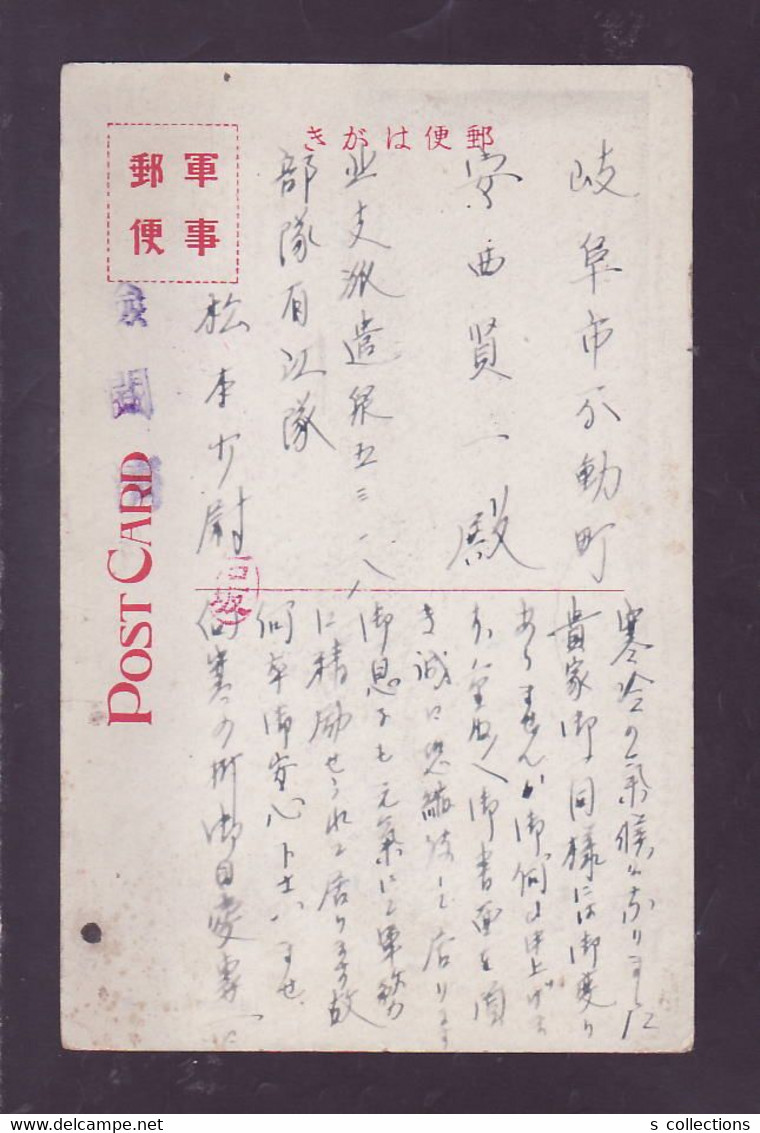 きがはルの便郵
軍事
郵便
POST CARD
岐阜市不動町
安西賢一殿
北支派遣泉五三一八
部隊有江隊
松本少尉
寒冷の気候になりました
貴家御一同様には御変り
ありませんか御伺ひ申上げます
御書面を頂
き誠に恐縮致して居ります
御息子も元気にて軍務
に精励せられて居ります故
何卒御安心下さいませ
向寒の折御自愛専一に
s collections